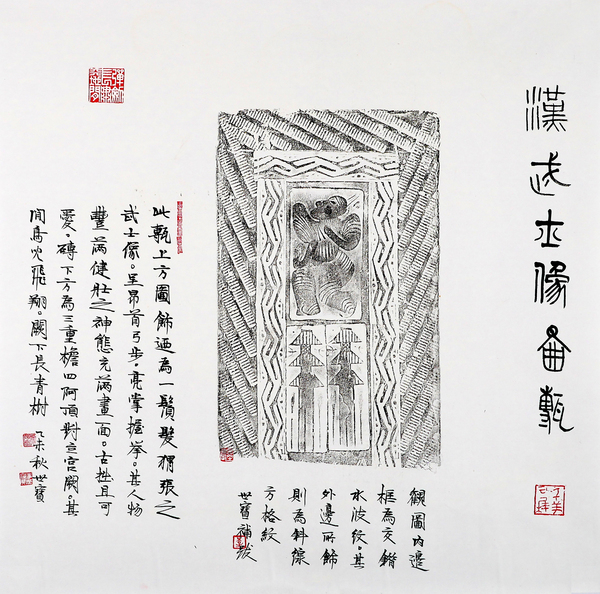 漢武士像畫甎
此甎上方圖飾迺為一鬚髮猬張之
武士像。呈昂首弓步，亮掌握拳。其人物
豐滿健壯之神態充滿畫面。古拙且可
愛。磚下方為三重檐四阿頂對立宮闕。其
間鳥飛翔。闕下長青樹 乙未秋世寶
觀圖內邊
框為交錯
水波紋。其
外邊所飾
則為斜線
方格紋
世寶補跋